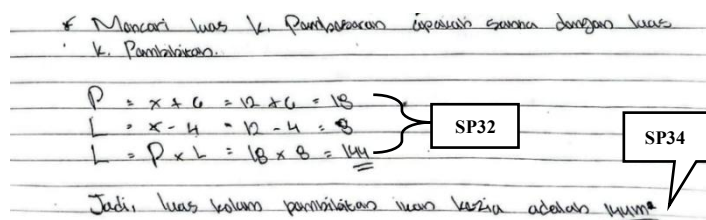 * Mencari luas k. Pembesaran apakah sama dengan luas
k. Pembibitan.
P = x + 6 = 12 + 6 = 18
L = x - 4 = 12 - 4 = 8
L = P x L = 18 x 8 = 144
SP32
SP34
Jadi, luas kolam pembibitan ikan kezia adalah 144m²